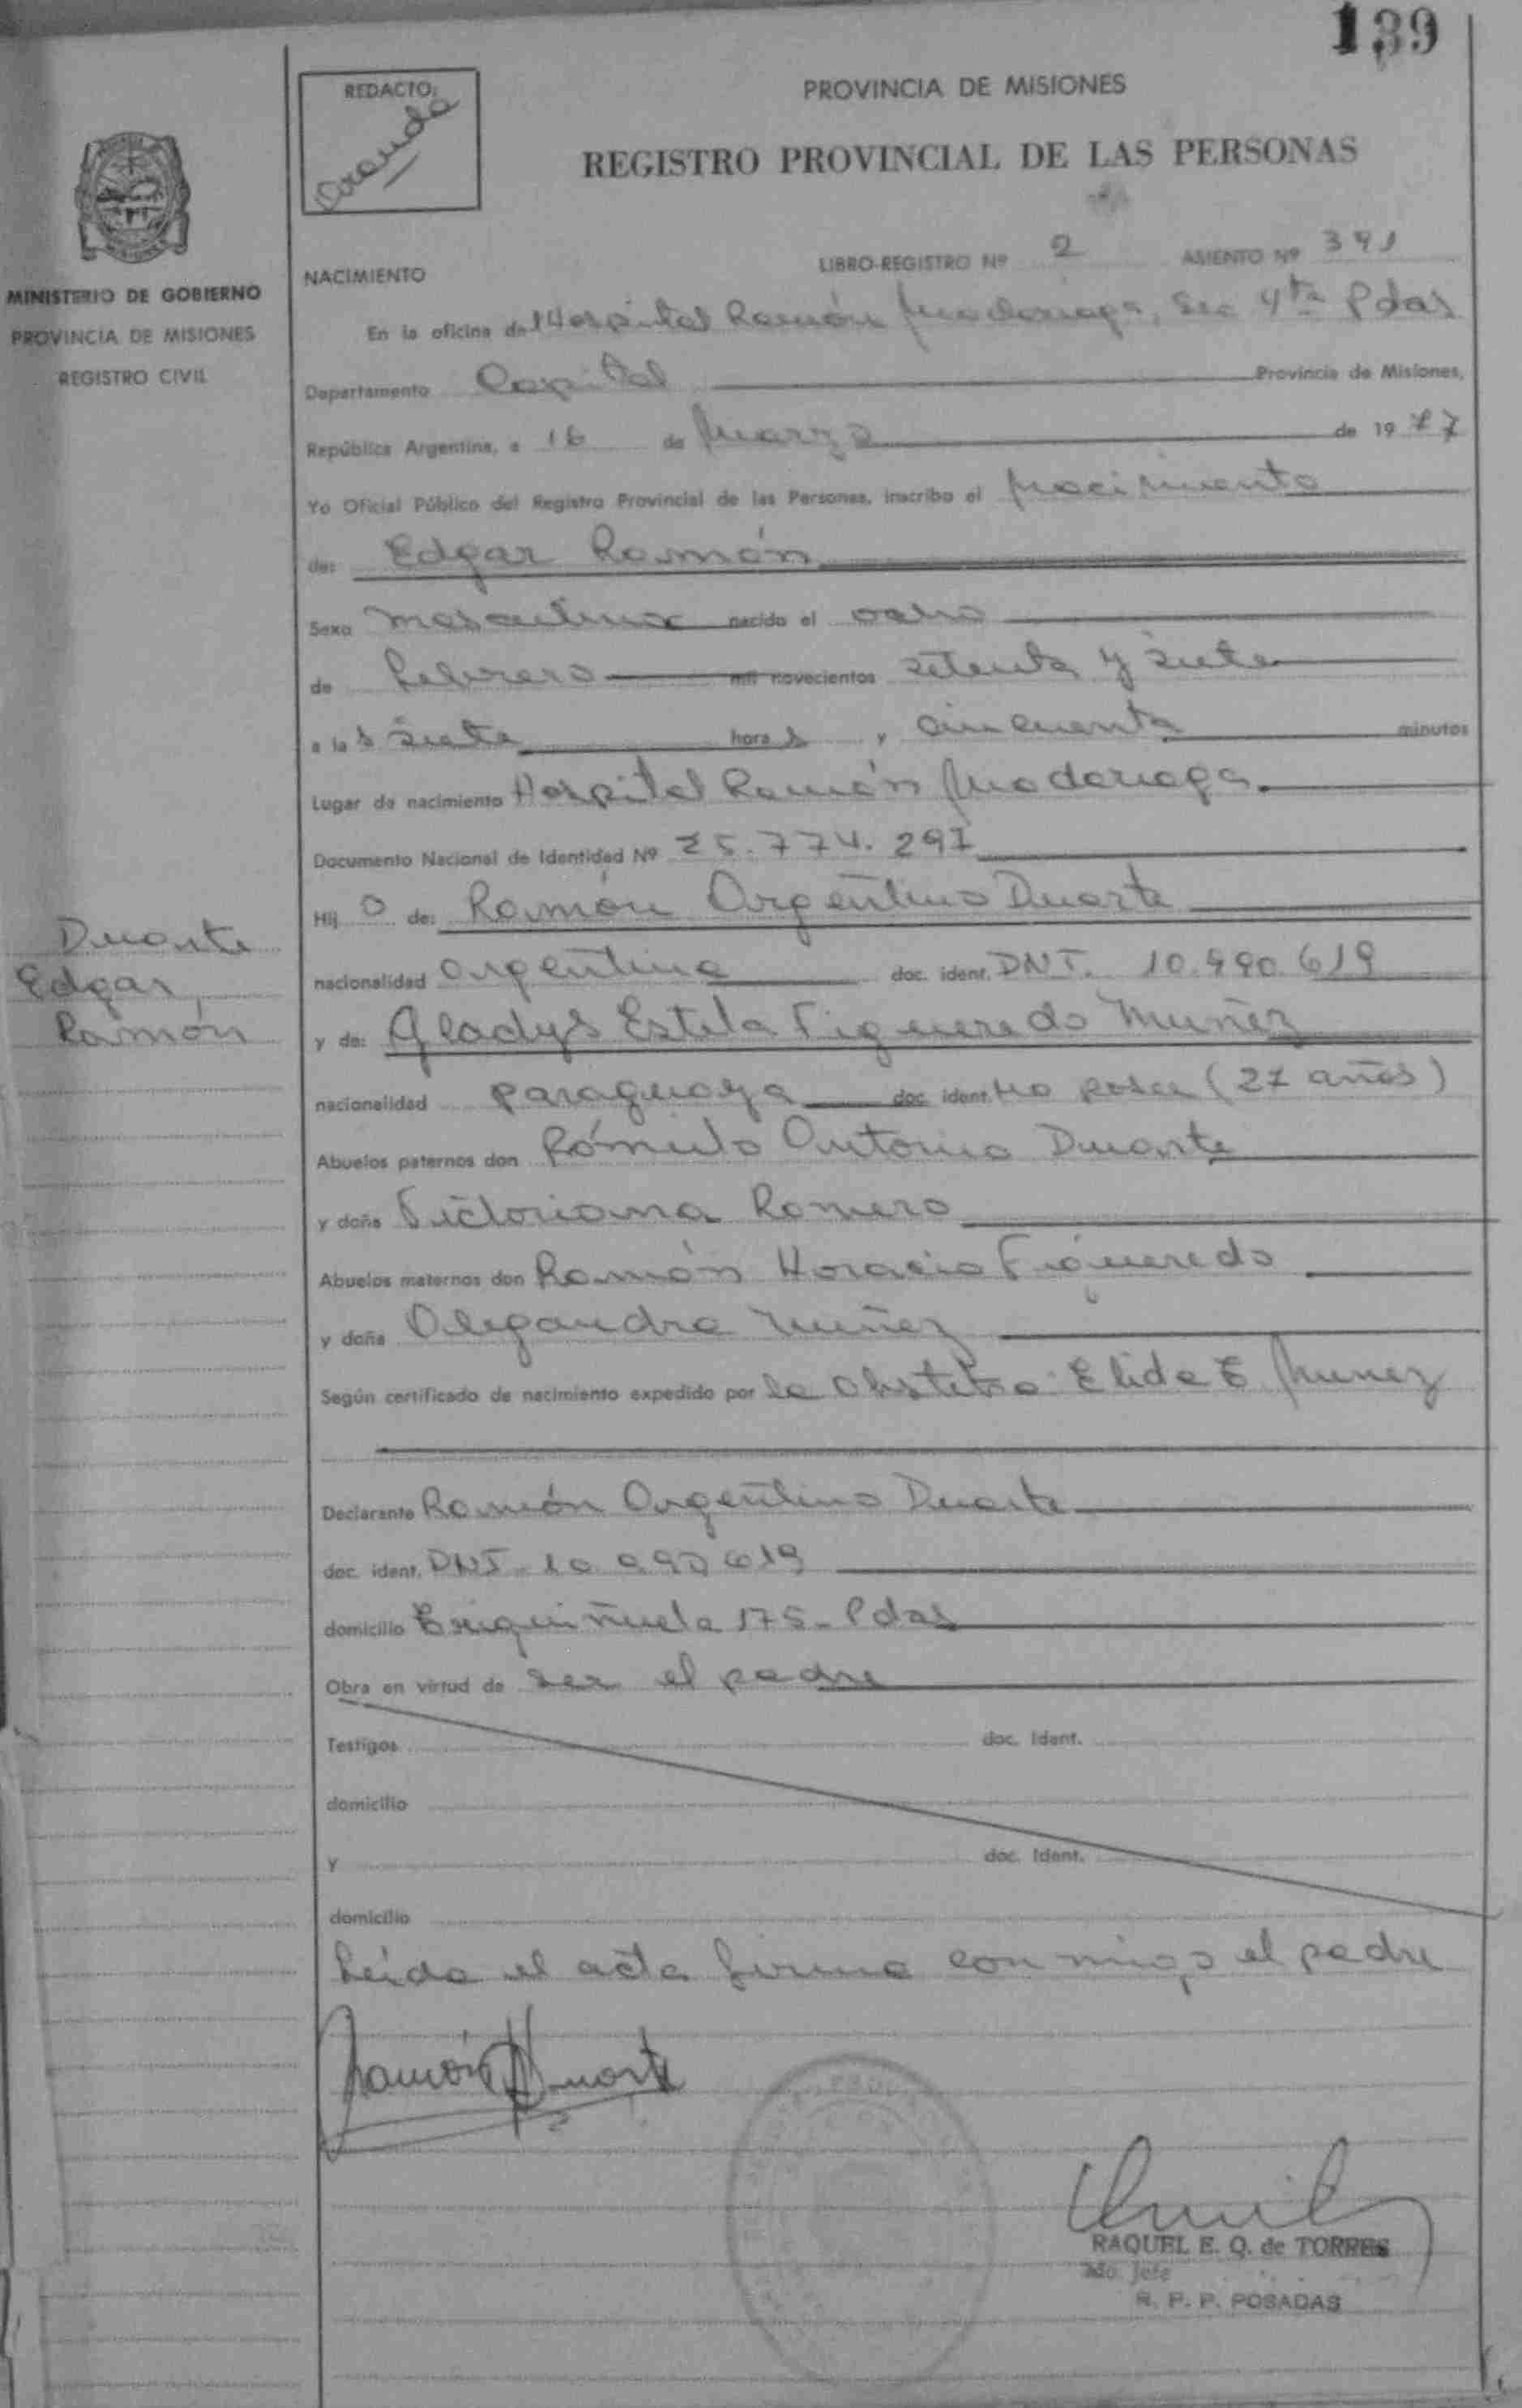 139
REDACTO:
PROVINCIA DE MISIONES
REGISTRO PROVINCIAL DE LAS PERSONAS
MINISTERIO DE GOBIERNO
PROVINCIA DE MISIONES
REGISTRO CIVIL
NACIMIENTO
LIBRO-REGISTRO Nº 2 ASIENTO Nº 391
En la oficina del Hospital Ramón Madariaga, Sec 4ta Pdas
Departamento Capital Provincia de Misiones,
República Argentina, a 16 de Marzo de 1977
Yo Oficial Público del Registro Provincial de las Personas, inscribo el nacimiento
de: Edgar Ramón
Sexo masculino nacido el ocho
de febrero mil novecientos setenta y siete
a las siete horas y cincuenta minutos
Lugar de nacimiento Hospital Ramón Madariaga.
Documento Nacional de Identidad Nº 25.774.297
Hijo de: Ramón Argentino Duarte
Duarte
Edgar,
Ramón
nacionalidad argentina doc. ident. DNI. 10.990.619
y de: Gladys Estela Figueredo Muñez
nacionalidad paraguaya doc. ident. no posee (27 años)
Abuelos paternos don Rómulo Antonio Duarte
y doña Victoriana Romero
Abuelos maternos don Ramón Horacio Figueredo
y doña Alejandra Muñez
Según certificado de nacimiento expedido por la Obstetra Elida E. Nunez
Declarante Ramón Argentino Duarte
doc. ident. DNI. 10.990.619
domicilio 175 - Pdas
Obra en virtud de ser el padre
Testigos doc. Ident.
domicilio
y doc. Ident.
domicilio
Leida el acta firma con migo el padre
Ramón A Duarte
RAQUEL E. Q. de TORRES
2do. Jefe
R. P. P. POSADAS